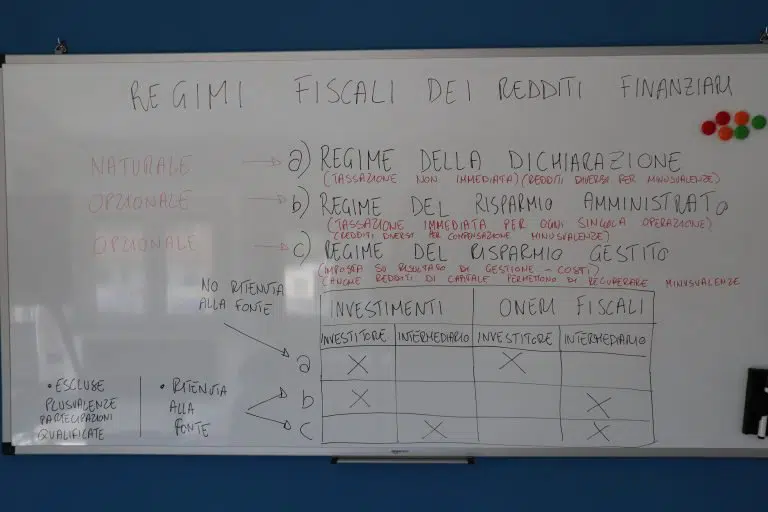 REGIMI FISCALI DEI REDDITI FINANZIARI
NATURALE → a) REGIME DELLA DICHIARAZIONE
(TASSAZIONE NON IMMEDIATA) (REDDITI DIVERSI PER MINUSVALENZE)
OPZIONALE → b) REGIME DEL RISPARMIO AMMINISTRATO
(TASSAZIONE IMMEDIATA PER OGNI SINGOLA OPERAZIONE)
(REDDITI DIVERSI PER COMPENSAZIONE MINUSVALENZE)
OPZIONALE → c) REGIME DEL RISPARMIO GESTITO
(IMPOSTA SU RISULTATO DI GESTIONE - COSTI)
(ANCHE REDDITI DI CAPITALE PERMETTONO DI RECUPERARE MINUSVALENZE
NO RITENUTA
ALLA FONTE
INVESTIMENTI ONERI FISCALI
INVESTITORE INTERMEDIARIO INVESTITORE INTERMEDIARIO
a X X
b X X
c X X
• ESCLUSE
PLUSVALENZE
PARTECIPAZIONI
QUALIFICATE
• RITENUTA
ALLA
FONTE